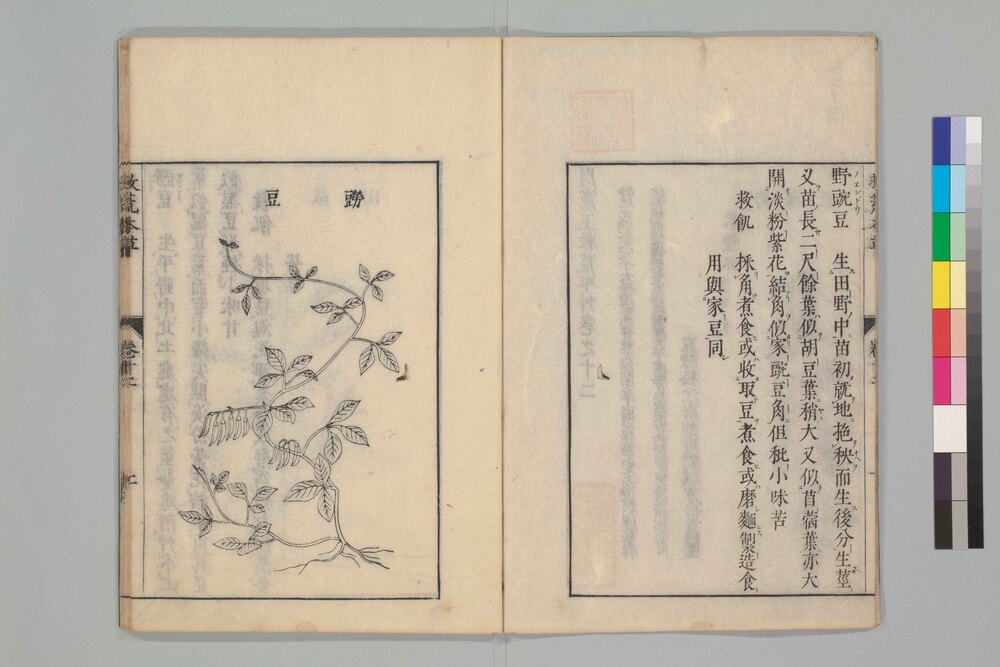 野豌豆 生田野中苗初就地拖秧而生後分生莖
叉苗長二尺餘葉似胡豆葉稍大又似苜蓿葉亦大
開淡粉紫花結角似家豌豆角但秕小味苦
救飢 採角煮食或收取豆煮食或磨麵製造食
用與家豆同
𧯆豆
救荒本草
卷十二